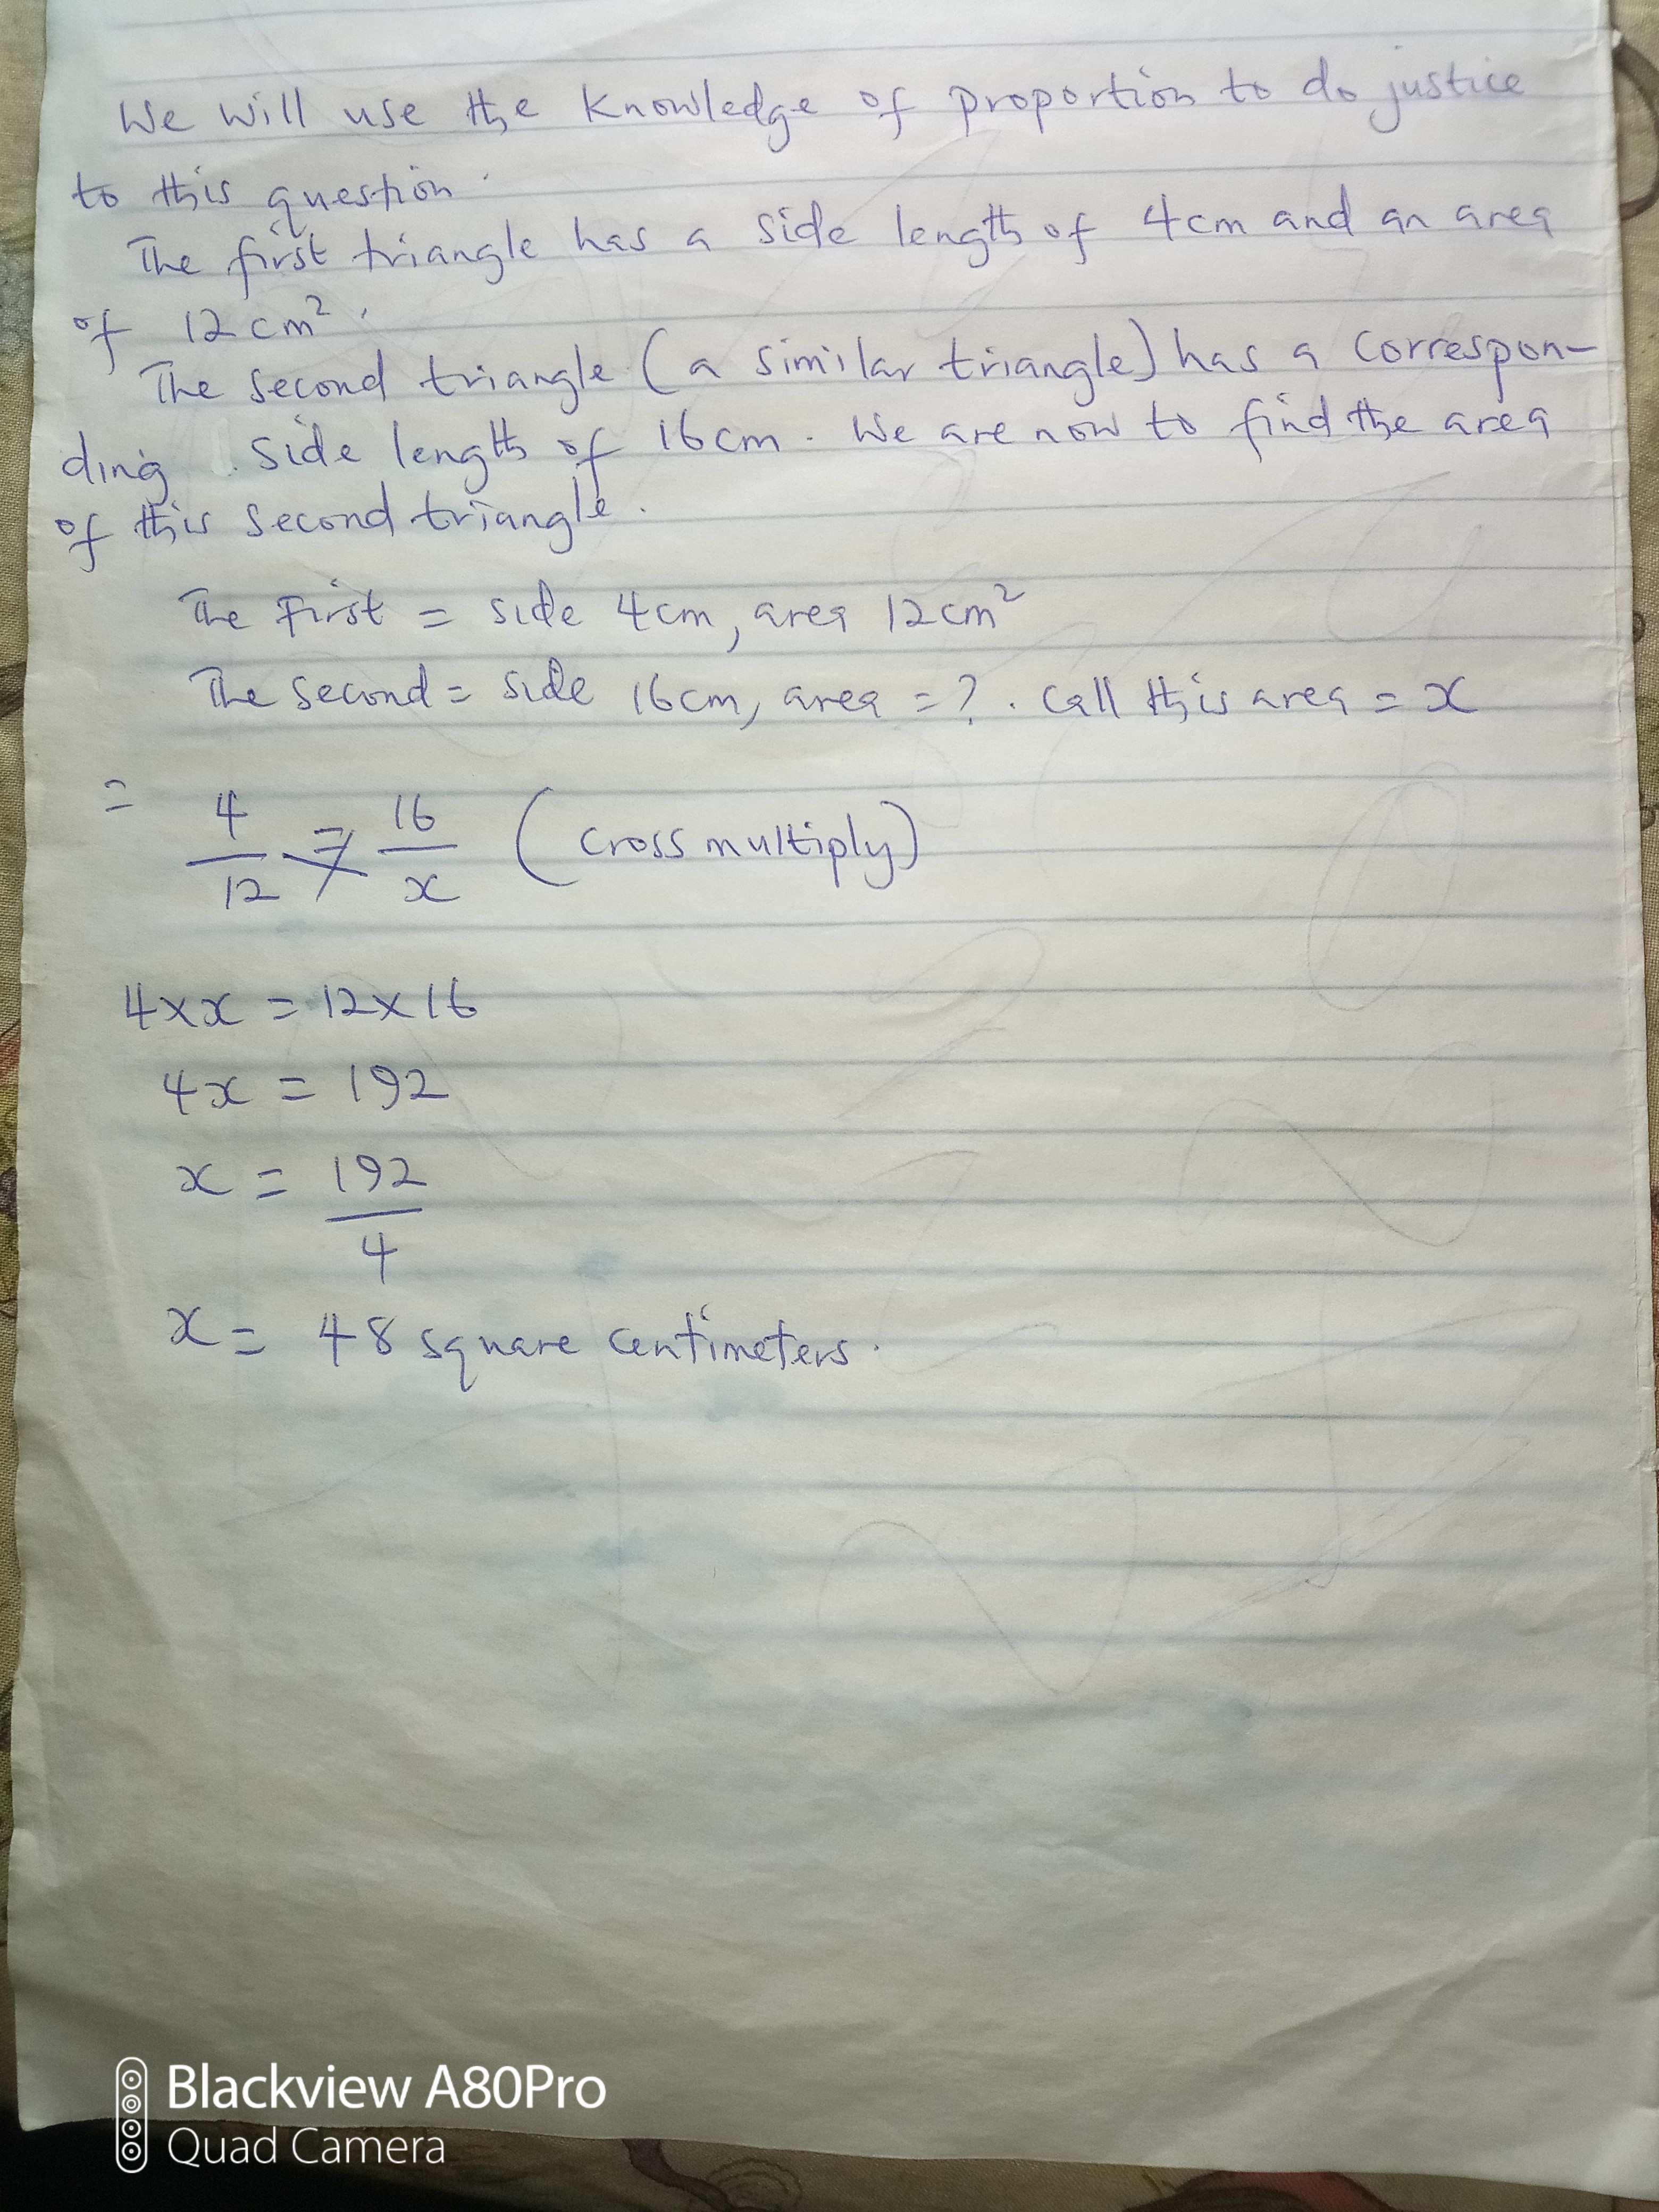 We will use the knowledge of proportion to do justice
to this question.
The first triangle has a side length of 4cm and an area
of 12cm².
The second triangle (a similar triangle) has a correspon-
ding side length of 16cm. We are now to find the area
of this second triangle.
The First = side 4cm, area 12cm²
The second = side 16cm, area = ?. Call this area = x
= 4/12 = 16/x (cross multiply)
4 × x = 12 × 16
4x = 192
x = 192/4
x = 48 square centimeters.
Blackview A80Pro
Quad Camera